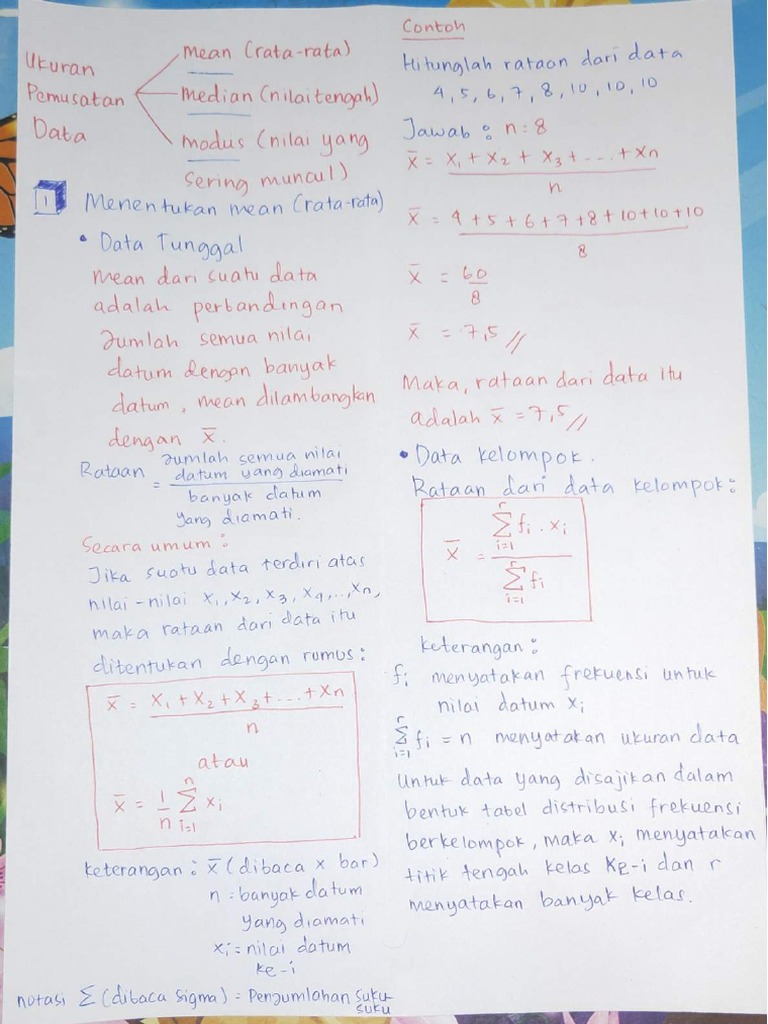 Ukuran
Pemusatan
Data
mean (rata-rata)
median (nilai tengah)
modus (nilai yang
sering muncul)
1 Menentukan mean (rata-rata)
• Data Tunggal
mean dari suatu data
adalah perbandingan
Jumlah semua nilai
datum dengan banyak
datum, mean dilambangkan
dengan x̄.
Rataan = Jumlah semua nilai
datum yang diamati
banyak datum
yang diamati.
Secara umum :
Jika suatu data terdiri atas
nilai-nilai x₁, x₂, x₃, x₄, ..., xn,
maka rataan dari data itu
ditentukan dengan rumus :
x̄ = x₁ + x₂ + x₃ + ... + xn
n
atau
x̄ = 1/n Σ xi
n
i=1
keterangan : x̄ (dibaca x bar)
n = banyak datum
yang diamati
xi = nilai datum
ke-i
notasi Σ (dibaca sigma) = Penjumlahan suku-
suku
Contoh
Hitunglah rataan dari data
4, 5, 6, 7, 8, 10, 10, 10
Jawab : n = 8
x̄ = x₁ + x₂ + x₃ + ... + xn
n
x̄ = 4 + 5 + 6 + 7 + 8 + 10 + 10 + 10
8
x̄ = 60
8
x̄ = 7,5 //
Maka, rataan dari data itu
adalah x̄ = 7,5 //
• Data kelompok.
Rataan dari data kelompok :
r
Σ fi . xi
i=1
x̄ =
r
Σ fi
i=1
keterangan :
fi menyatakan frekuensi untuk
nilai datum xi
r
Σ fi = n menyatakan ukuran data
i=1
Untuk data yang disajikan dalam
bentuk tabel distribusi frekuensi
berkelompok, maka xi menyatakan
titik tengah kelas ke-i dan r
menyatakan banyak kelas.